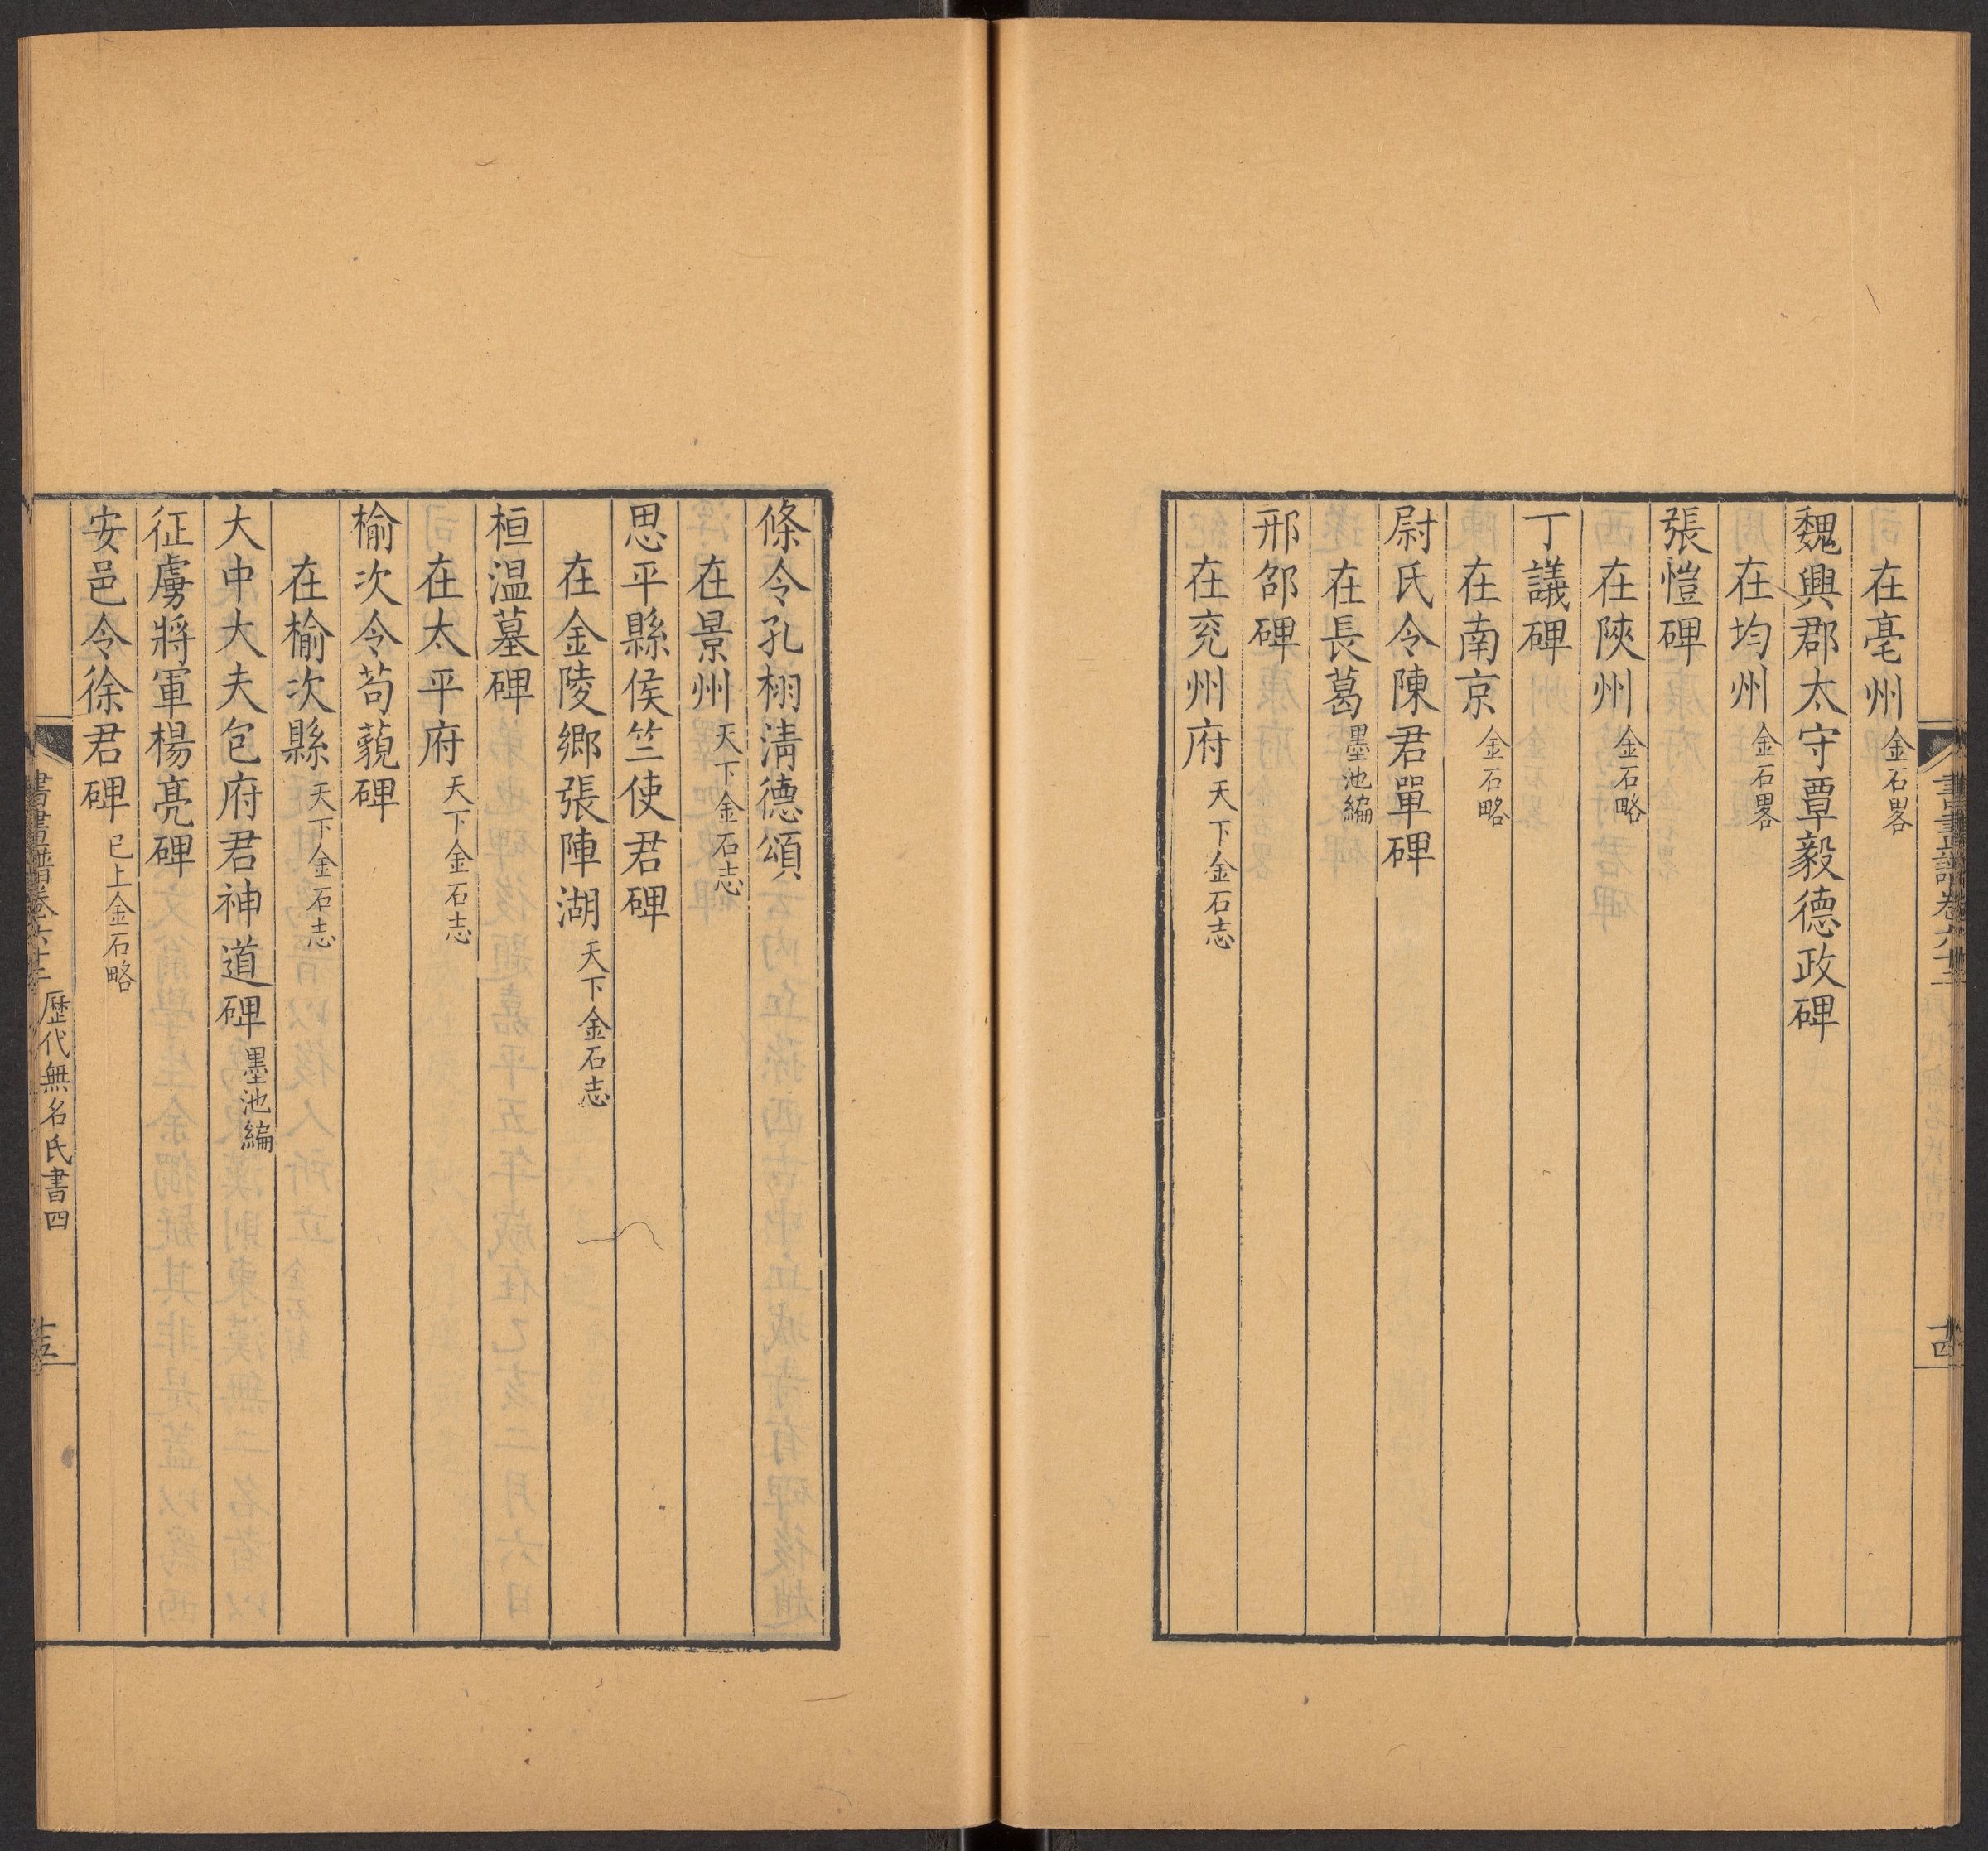 在亳州金石畧
魏興郡太守覃毅德政碑
在均州金石畧
張愷碑
在陝州金石略
丁議碑
在南京金石略
尉氏令陳君單碑
在長葛墨池編
邢邵碑
在兖州府天下金石志
十四
條令孔栩淸德頌
在景州天下金石志
思平縣侯竺使君碑
在金陵鄉張陣湖天下金石志
桓温墓碑
在太平府天下金石志
榆次令荀藐碑
在榆次縣天下金石志
大中大夫包府君神道碑墨池編
征虜將軍楊亮碑
安邑令徐君碑已上金石略
歷代無名氏書四
十五